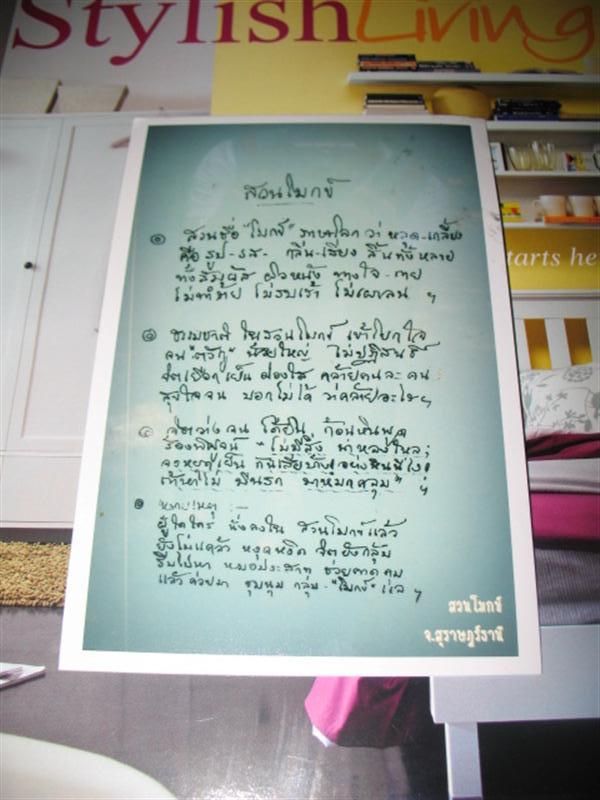 Stylish Living
starts he
สวนโมกข์
๑ สวนชื่อ "โมกข์" ภาษาโลก ว่า หลุด-เกลี้ยง
คือ รูป-รส- กลิ่น-เสียง สิ้นทั้งหลาย
ทั้งสัมผัส ผิวหนัง ทางใจ-กาย
ไม่ทำร้าย ไม่รบเร้า ไม่เผาลน ฯ
๒ ธรรมชาติ ในสวนโมกข์ เข้าโยกใจ
จน น้อยใหญ่ ไม่ปฏิสนธิ์
จิตเยือกเย็น ผ่องใส คล้ายคนละคน
สุขใจจน บอกไม่ได้ ว่าคล้ายอะไรฯ
จิตว่างจน ได้ยิน ก้อนหินพูด
"ไม่มีสิ่ง น่าหลงใหล;
จงหยุดเย็น กันเสียบ้าง อย่างหินนี่ไง!
มีนรก มาหมกสุม" ฯ
หมายเหตุ :—
ผู้ใดใคร่ นั่งลงใน สวนโมกข์แล้ว
ยังไม่แคล้ว หงุดหงิด จิตยังกลุ้ม
รีบไปหา หมอประสาท ช่วย คุม
แล้วค่อยมา ชุมนุม กลุ่ม-"โมกข์" แล ฯ
สวนโมกข์
จ.สุราษฎร์ธานี